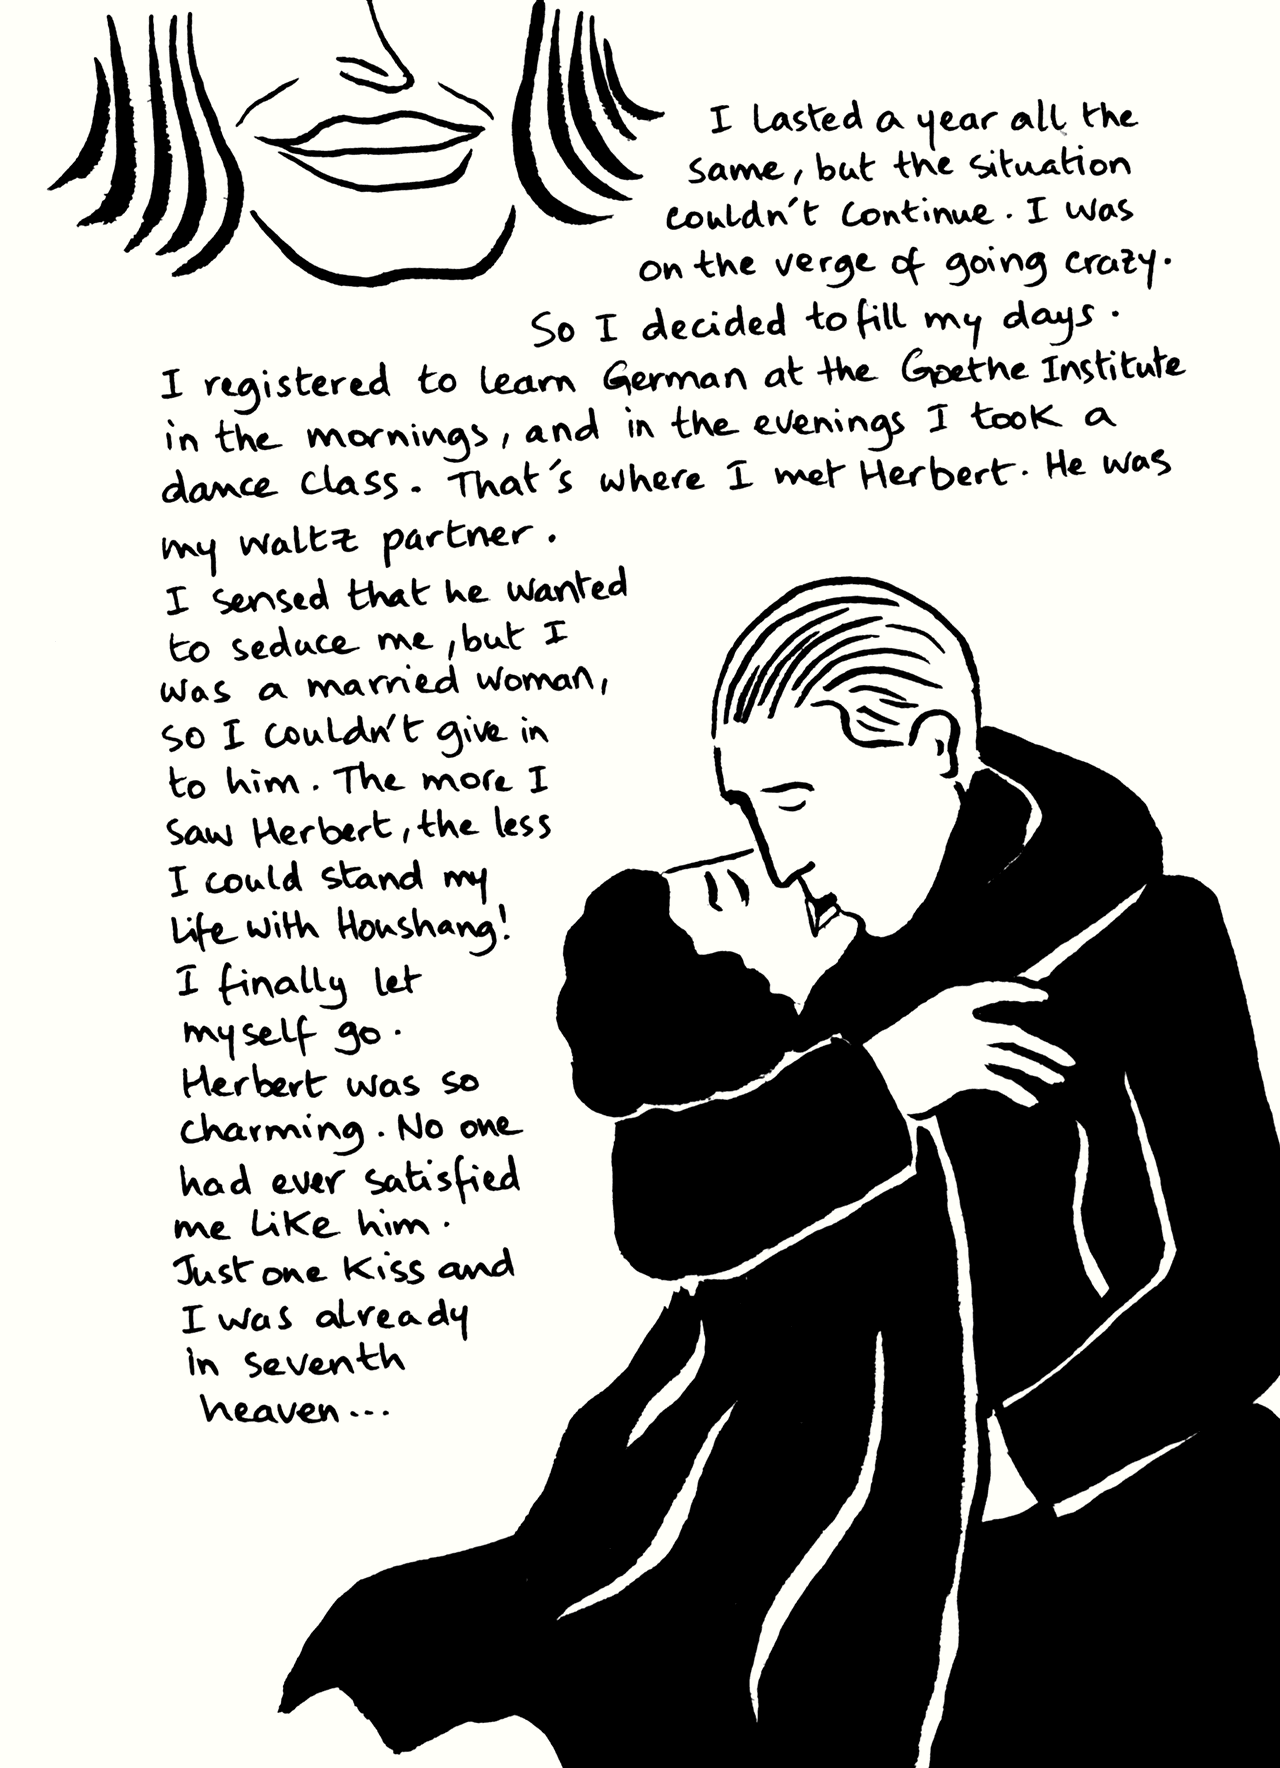 I lasted a year all the
same, but the situation
couldn't continue. I was
on the verge of going crazy.
So I decided to fill my days.
I registered to learn German at the Goethe Institute
in the mornings, and in the evenings I took a
dance class. That's where I met Herbert. He was
my waltz partner.
I sensed that he wanted
to seduce me, but I
was a married woman,
so I couldn't give in
to him. The more I
saw Herbert, the less
I could stand my
life with Houshang!
I finally let
myself go.
Herbert was so
charming. No one
had ever satisfied
me like him.
Just one kiss and
I was already
in seventh
heaven...